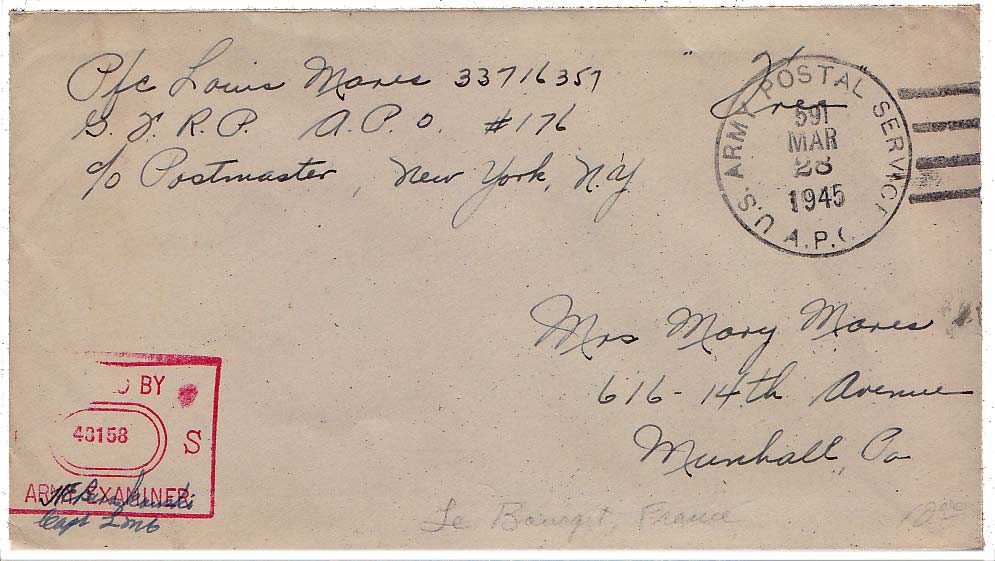 Pfc Louis Mares 33716357
G.F.R.P. A.P.O. #176
c/o Postmaster, New York, N.Y
Free
U.S. ARMY POSTAL SERVICE
591
MAR
28
1945
A.P.O.
Mrs Mary Mares
616-14th Avenue
Munhall, Pa
BY
43158
S
ARMY EXAMINER
Capt
Le Bourget, France